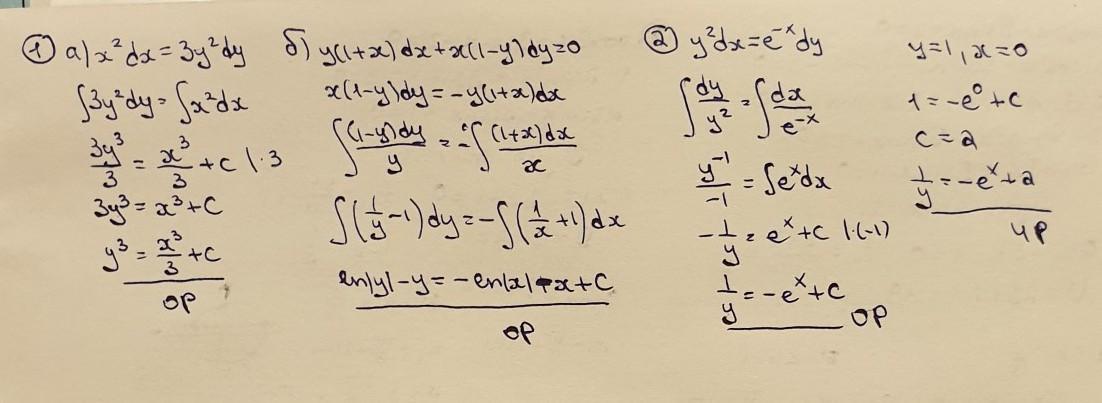 ① а) x²dx = 3y²dy
∫3y²dy = ∫x²dx
3y³/3 = x³/3 + C |·3
3y³ = x³ + C
y³ = x³/3 + C
ОР
б) y(1+x)dx + x(1-y)dy = 0
x(1-y)dy = -y(1+x)dx
∫(1-y)dy/y = -∫(1+x)dx/x
∫(1/y - 1)dy = -∫(1/x + 1)dx
ln|y| - y = -ln|x| - x + C
ОР
② y²dx = e⁻ˣdy
∫dy/y² = ∫dx/e⁻ˣ
y⁻¹/-1 = ∫eˣdx
-1/y = eˣ + C |·(-1)
1/y = -eˣ + C
ОР
y=1, x=0
1 = -e⁰ + C
C = 2
1/y = -eˣ + 2
ЧР